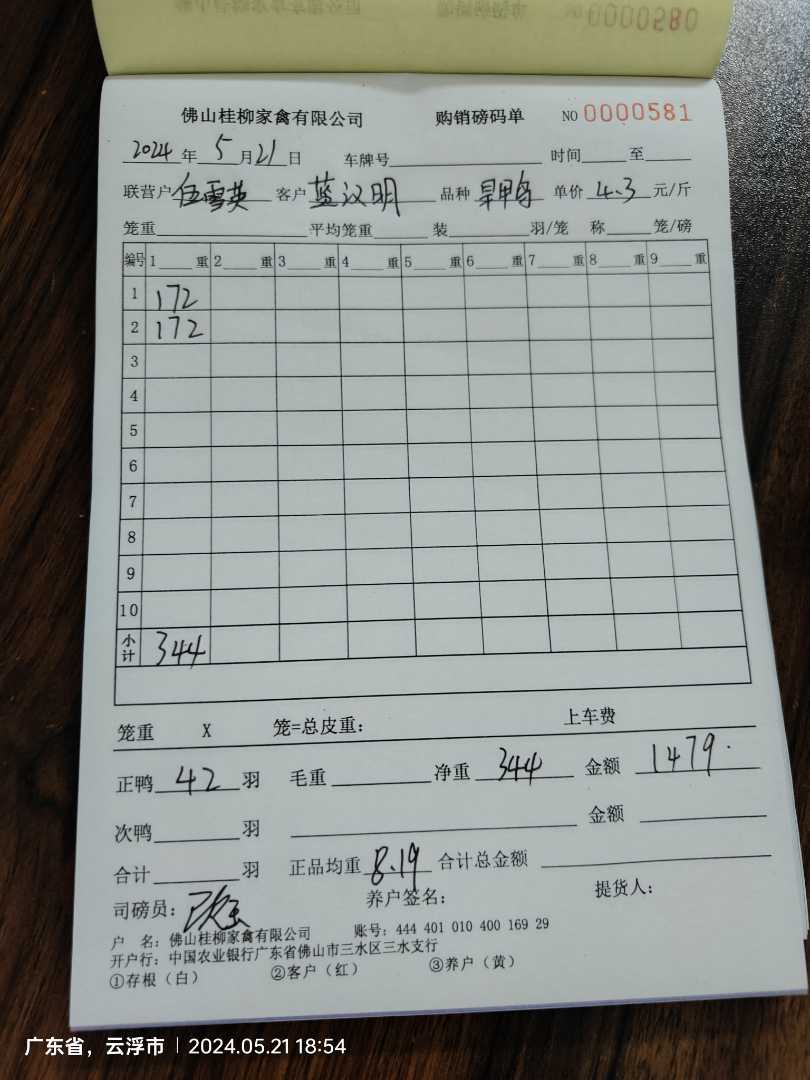 佛山桂柳家禽有限公司 购销磅码单 NO 0000580
佛山桂柳家禽有限公司 购销磅码单 NO 0000581
2024 年 5 月 21 日 车牌号 时间 至
联营户 伍雪英 客户 蓝汉明 品种 旱鸭 单价 4.3 元/斤
笼重 平均笼重 装 羽/笼 称 笼/磅
编号 1 重 2 重 3 重 4 重 5 重 6 重 7 重 8 重 9 重
1 172
2 172
3
4
5
6
7
8
9
10
小计 344
笼重 X 笼=总皮重: 上车费
正鸭 42 羽 毛重 净重 344 金额 1479.
次鸭 羽 金额
合计 羽 正品均重 8.19 合计总金额
司磅员: 养户签名: 提货人:
户 名: 佛山桂柳家禽有限公司 账号: 444 401 010 400 169 29
开户行: 中国农业银行广东省佛山市三水区三水支行
①存根(白) ②客户(红) ③养户(黄)
广东省,云浮市 | 2024.05.21 18:54